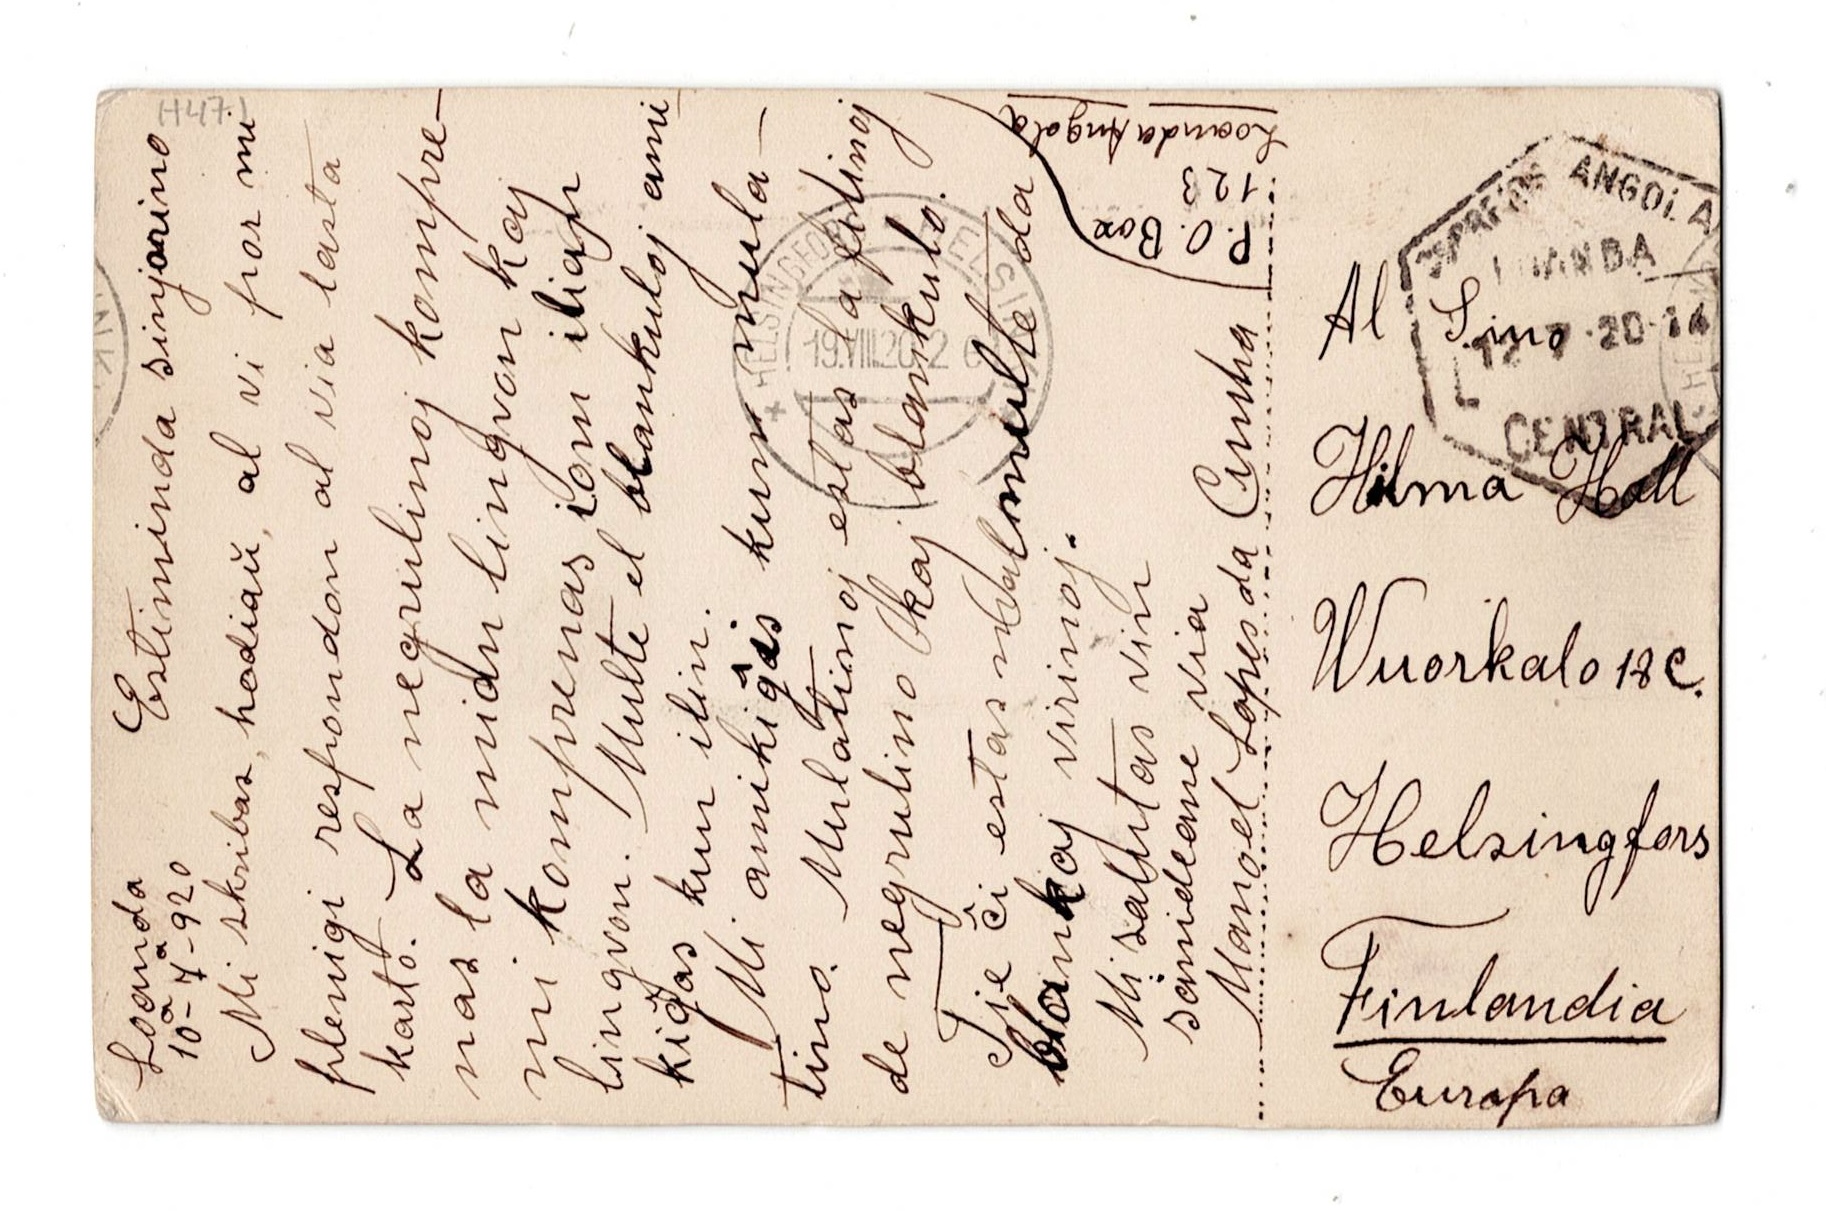 H47.)
Loanda
10-7-920
Estiminda sinjorino
Mi skribas, hodiaŭ, al vi por mi
plenigi respondon al via lasta
karto. La negrulinoj kompre-
nas la nidn lingvon kaj
ni komprenas iom iliajn
lingvon. Multe el blankuloj ami
kiĝas kun ilin.
Mi amikiĝas kun mula-
tino. Mulatinoj estas la filinoj
de negrulino kaj blankulo.
Tie ĉi estas malmulte da
blankaj virinoj.
Mi salutas vin
samideane via
Manoel Lopes da Cunha
P.O. Box
123
Loanda Angola
HELSINGFORS HELSINKI
19.VIII.20.12
CORREIOS ANGOLA
LUANDA
12-7-20-14
CENTRAL
Al S.ino
Hilma Hall
Wuorkalo 18 C.
Helsingfors
Finlandia
Europa